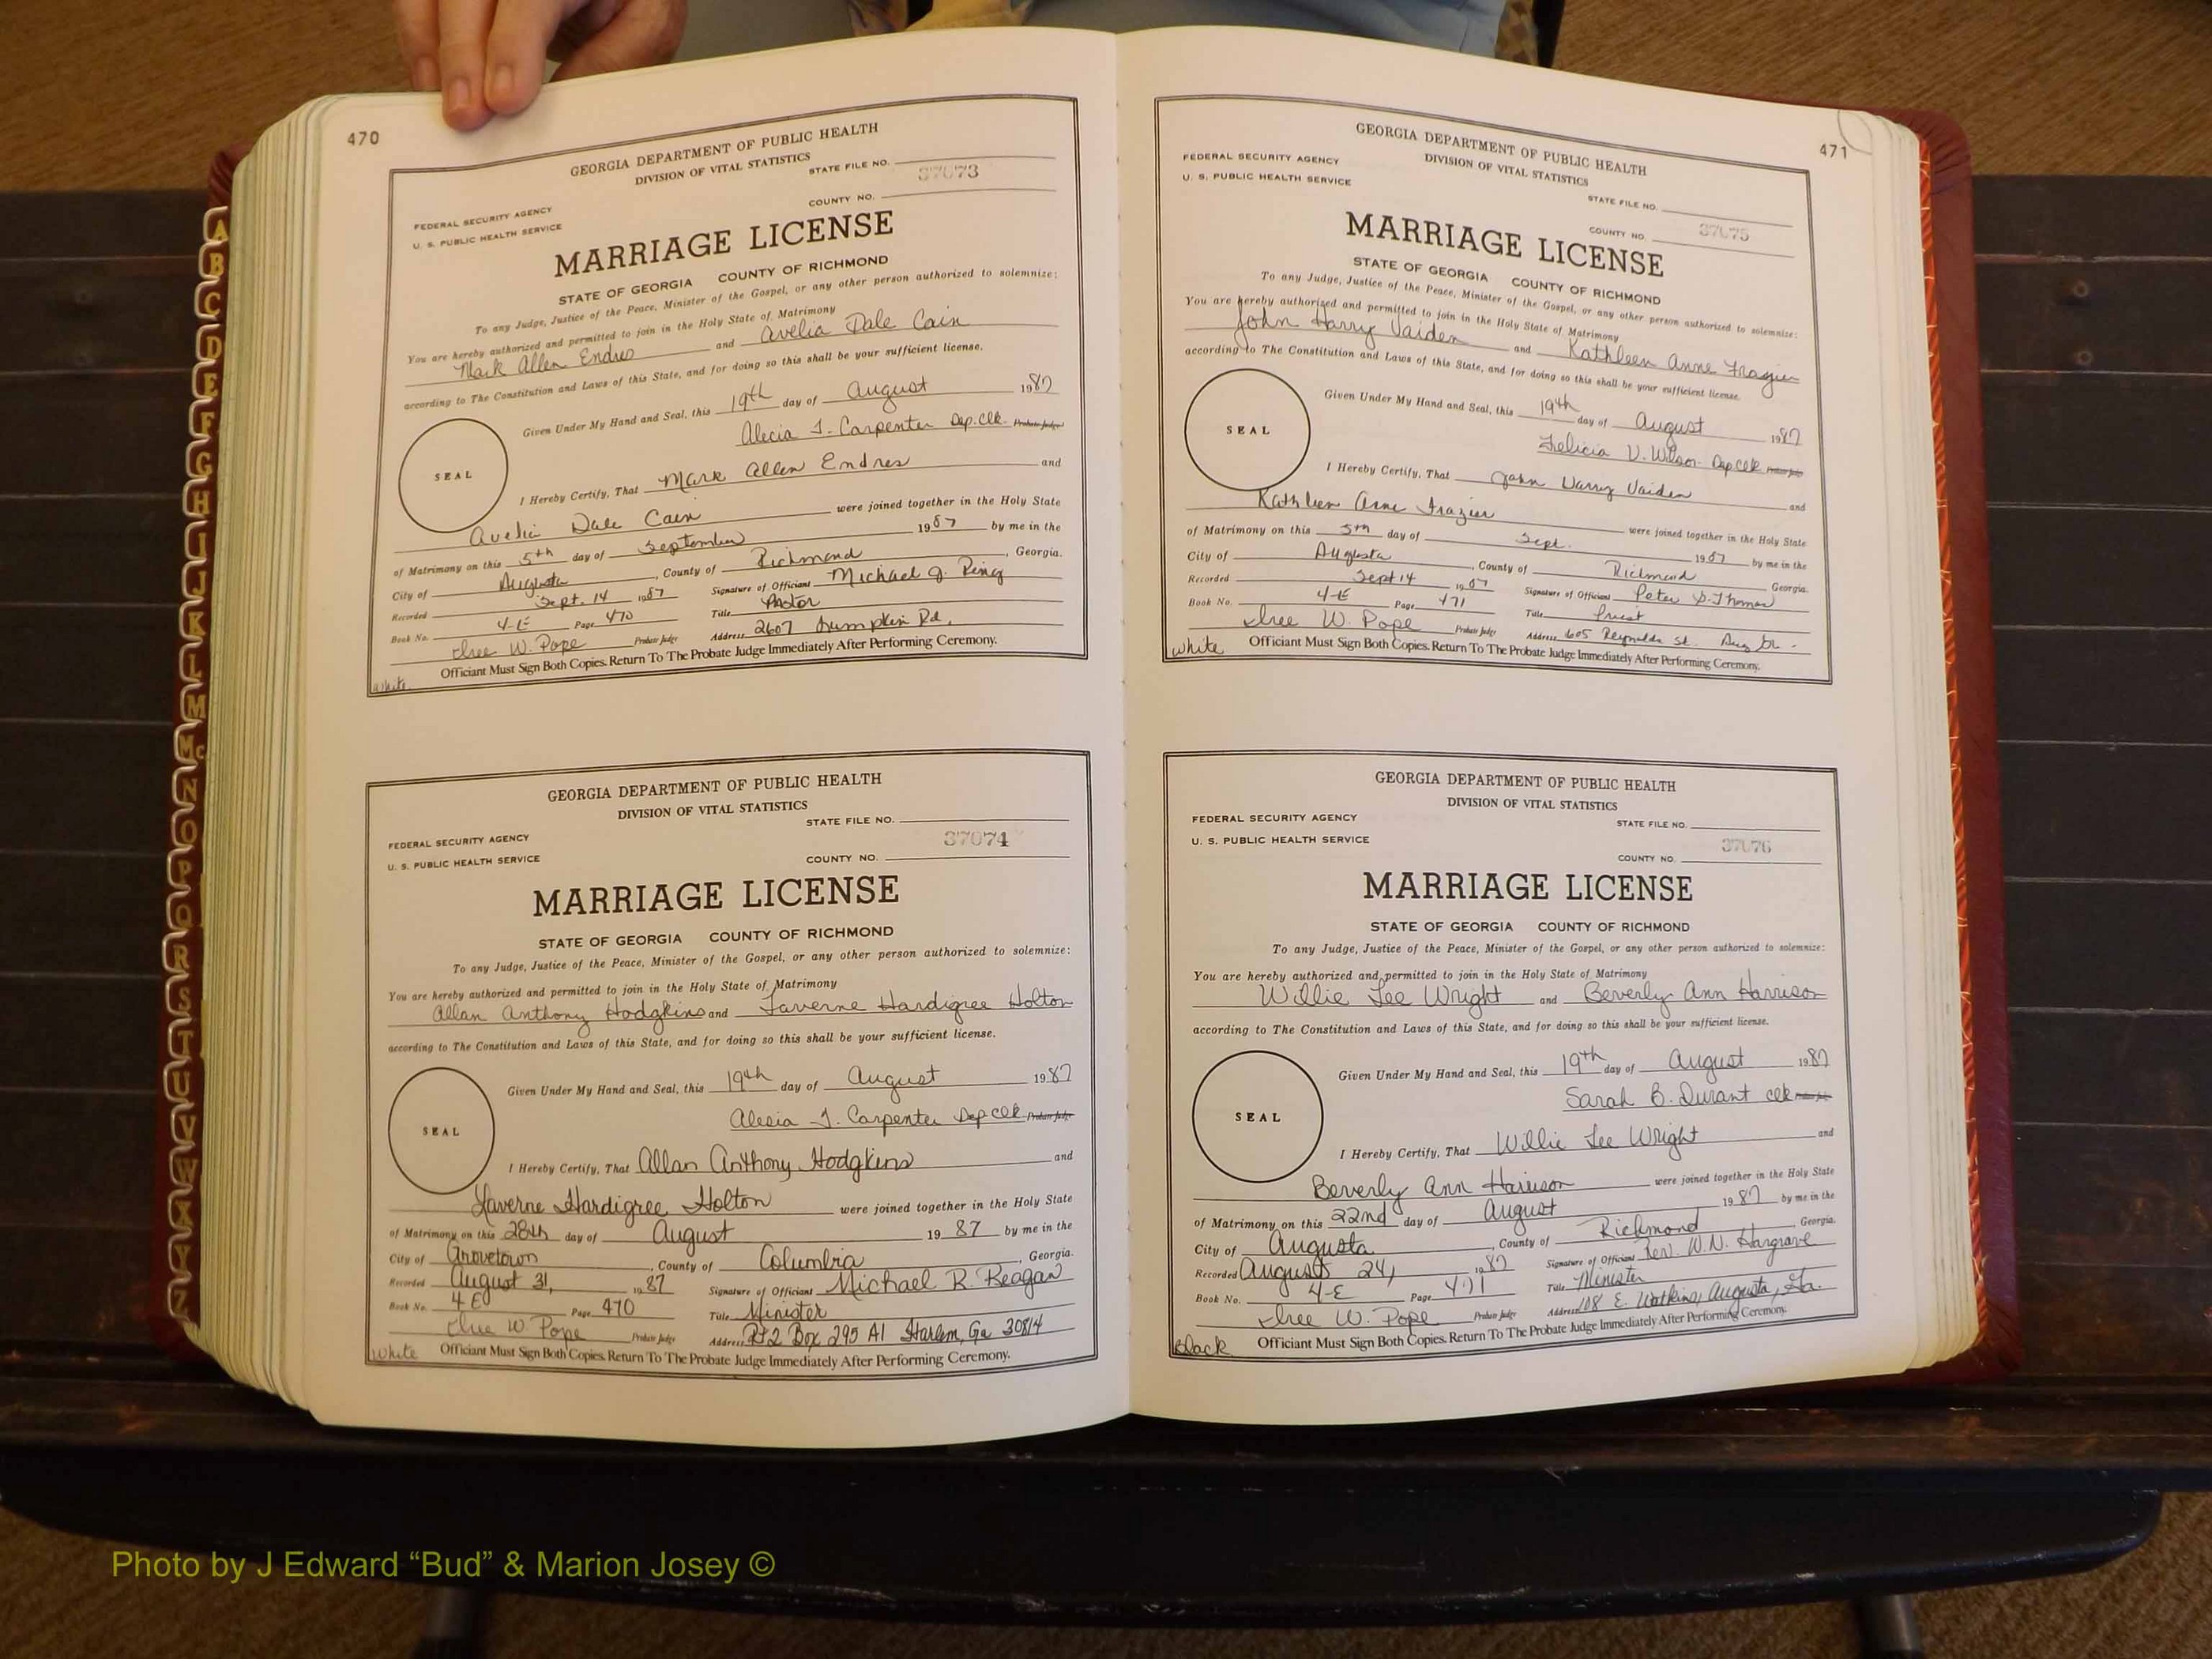 470
GEORGIA DEPARTMENT OF PUBLIC HEALTH
DIVISION OF VITAL STATISTICS
STATE FILE NO.
37073
FEDERAL SECURITY AGENCY
COUNTY NO.
U. S. PUBLIC HEALTH SERVICE
MARRIAGE LICENSE
STATE OF GEORGIA COUNTY OF RICHMOND
To any Judge, Justice of the Peace, Minister of the Gospel, or any other person authorized to solemnize:
You are hereby authorized and permitted to join in the Holy State of Matrimony
Mark Allen Endres and Avelia Dale Cain
according to The Constitution and Laws of this State, and for doing so this shall be your sufficient license.
Given Under My Hand and Seal, this 19th day of August 1987
Alecia J. Carpenter Dep. Clk. Probate Judge
SEAL
I Hereby Certify, That Mark Allen Endres and
Avelia Dale Cain were joined together in the Holy State
of Matrimony on this 5th day of September 1987 by me in the
City of Augusta, County of Richmond, Georgia.
Recorded Sept. 14 1987 Signature of Officiant Michael J. Ring
Book No. 4-E Page 470 Title Pastor
W. Pope Probate Judge Address 2607 Lumpkin Rd.
Officiant Must Sign Both Copies. Return To The Probate Judge Immediately After Performing Ceremony.
White
GEORGIA DEPARTMENT OF PUBLIC HEALTH
DIVISION OF VITAL STATISTICS
STATE FILE NO.
37074
FEDERAL SECURITY AGENCY
COUNTY NO.
U. S. PUBLIC HEALTH SERVICE
MARRIAGE LICENSE
STATE OF GEORGIA COUNTY OF RICHMOND
To any Judge, Justice of the Peace, Minister of the Gospel, or any other person authorized to solemnize:
You are hereby authorized and permitted to join in the Holy State of Matrimony
Allan Anthony Hodgkins and Laverne Hardigree Holton
according to The Constitution and Laws of this State, and for doing so this shall be your sufficient license.
Given Under My Hand and Seal, this 19th day of August 1987
Alecia J. Carpenter Dep Clk Probate Judge
SEAL
I Hereby Certify, That Allan Anthony Hodgkins and
Laverne Hardigree Holton were joined together in the Holy State
of Matrimony on this 28th day of August 1987 by me in the
City of Grovetown, County of Columbia, Georgia.
Recorded August 31, 1987 Signature of Officiant Michael R. Reagan
Book No. 4E Page 470 Title Minister
W. Pope Probate Judge Address Rt 2 Box 295 A1 Harlem, Ga 30814
White Officiant Must Sign Both Copies. Return To The Probate Judge Immediately After Performing Ceremony.
471
GEORGIA DEPARTMENT OF PUBLIC HEALTH
FEDERAL SECURITY AGENCY
DIVISION OF VITAL STATISTICS
U. S. PUBLIC HEALTH SERVICE
STATE FILE NO.
COUNTY NO. 37075
MARRIAGE LICENSE
STATE OF GEORGIA COUNTY OF RICHMOND
To any Judge, Justice of the Peace, Minister of the Gospel, or any other person authorized to solemnize:
You are hereby authorized and permitted to join in the Holy State of Matrimony
John Harry Vaiden and Kathleen Anne Frazier
according to The Constitution and Laws of this State, and for doing so this shall be your sufficient license.
Given Under My Hand and Seal, this 19th day of August 1987
Felicia V. Wilson Dep Clk Probate Judge
SEAL
I Hereby Certify, That John Harry Vaiden and
Kathleen Anne Frazier were joined together in the Holy State
of Matrimony on this 5th day of Sept. 1987 by me in the
City of Augusta, County of Richmond Georgia.
Recorded Sept 14 1987 Signature of Officiant Peter D. Thomas
Book No. 4-E Page 471 Title Priest
W. Pope Probate Judge Address 605 Reynolds St. Aug Ga.
White Officiant Must Sign Both Copies. Return To The Probate Judge Immediately After Performing Ceremony.
GEORGIA DEPARTMENT OF PUBLIC HEALTH
DIVISION OF VITAL STATISTICS
FEDERAL SECURITY AGENCY
STATE FILE NO.
U. S. PUBLIC HEALTH SERVICE
37076
COUNTY NO.
MARRIAGE LICENSE
STATE OF GEORGIA COUNTY OF RICHMOND
To any Judge, Justice of the Peace, Minister of the Gospel, or any other person authorized to solemnize:
You are hereby authorized and permitted to join in the Holy State of Matrimony
Willie Lee Wright and Beverly Ann Harrison
according to The Constitution and Laws of this State, and for doing so this shall be your sufficient license.
Given Under My Hand and Seal, this 19th day of August 1987
Sarah B. Durant Clk Probate Judge
SEAL
I Hereby Certify, That Willie Lee Wright and
Beverly Ann Harrison were joined together in the Holy State
of Matrimony on this 22nd day of August 1987 by me in the
City of Augusta, County of Richmond, Georgia.
Recorded August 24, 1987 Signature of Officiant Rev. W.N. Hargrove
Book No. 4-E Page 471 Title Minister
W. Pope Probate Judge Address 108 E. Watkins, Augusta, Ga.
Black Officiant Must Sign Both Copies. Return To The Probate Judge Immediately After Performing Ceremony.
A
B
C
D
E
F
G
H
I
J
K
L
M
Mc
N
O
P
Q
R
S
T
U
V
W
X
Y
Z
Photo by J Edward “Bud” & Marion Josey ©